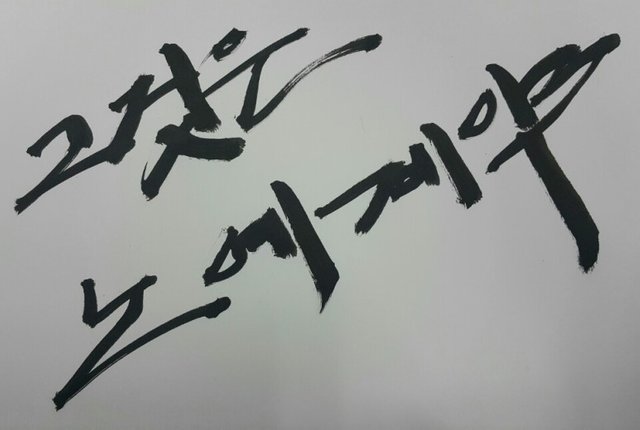 그것은
노예제야